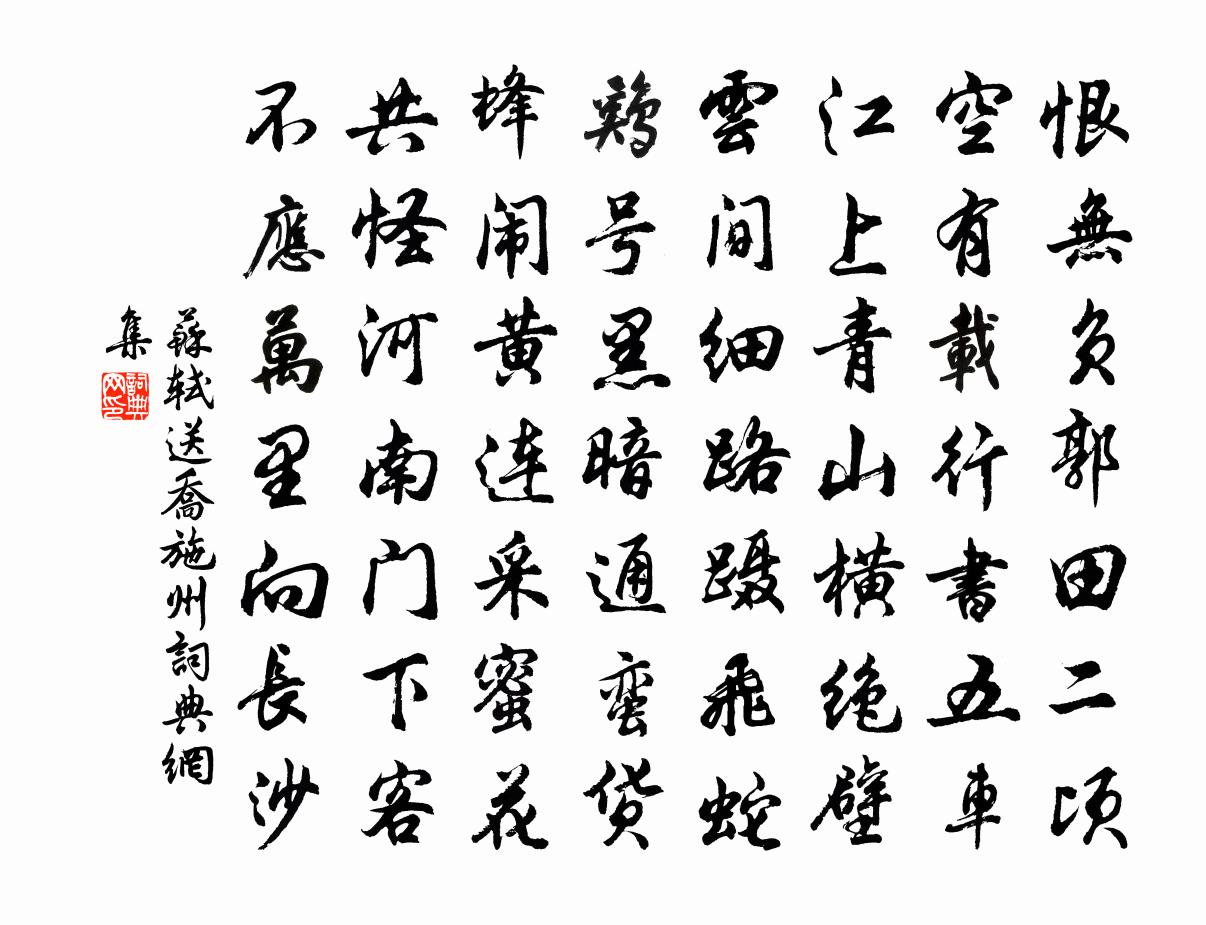 恨無负郭田二顷
空有載行書五車
江上青山横绝壁
雲间细路蹑飛蛇
鷄号黑暗通蛮货
蜂闹黄连采蜜花
共怪河南门下客
不應萬里向長沙
蘇轼送喬施州詞典網
集
詞典网印